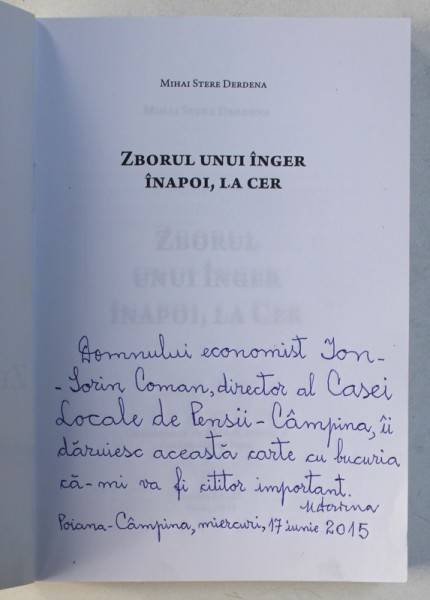 MIHAI STERE DERDENA
MIHAI STERE DERDENA
ZBORUL UNUI ÎNGER
ÎNAPOI, LA CER
ZBORUL
UNUI ÎNGER
ÎNAPOI, LA CER
Domnului economist Ion-
-Sorin Coman, director al Casei
Locale de Pensii-Câmpina, îi
dăruiesc această carte cu bucuria
că-mi va fi cititor important.
Poiana-Câmpina, miercuri, 17 iunie 2015